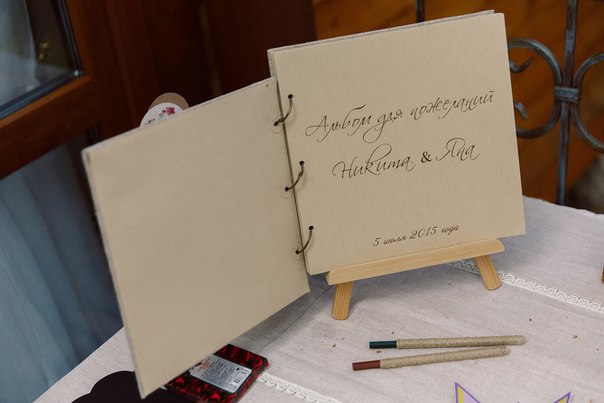 Альбом для пожеланий
Никита & Яна
5 июля 2015 года